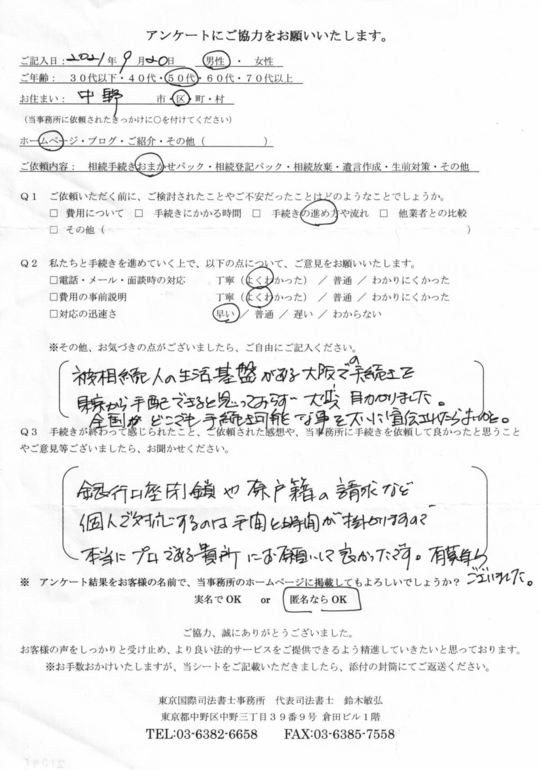 アンケートにご協力をお願いいたします。
ご記入日：2021年9月20日　男性・女性
ご年齢：３０代以下・４０代・５０代・６０代・７０代以上
お住まい：中野　市・区・町・村
（当事務所に依頼されたきっかけに○を付けてください）
ホームページ・ブログ・ご紹介・その他（　　　　　　）
ご依頼内容：相続手続きおまかせパック・相続登記パック・相続放棄・遺言作成・生前対策・その他
Ｑ１　ご依頼いただく前に、ご検討されたことやご不安だったことはどのようなことでしょうか。
□　費用について　□　手続きにかかる時間　□　手続きの進め方や流れ　□　他業者との比較
□　その他（　　　　　　　　　　　　　　　　）
Ｑ２　私たちと手続きを進めていく上で、以下の点について、ご意見をお願いいたします。
□電話・メール・面談時の対応　丁寧（よくわかった）／普通／わかりにくかった
□費用の事前説明　丁寧（よくわかった）／普通／わかりにくかった
□対応の迅速さ　早い／普通／遅い／わからない
※その他、お気づきの点がございましたら、ご自由にご記入ください。
被相続人の生活基盤がある大阪での手続きを
東京から手配できると思っておらず大変助かりました。
全国どこでも手続き可能な事を大いに宣伝されたらよいかと。
Ｑ３　手続きが終わって感じられたこと、ご依頼された感想や、当事務所に手続きを依頼して良かったと思うこと
やご意見等ございましたら、お聞かせください。
銀行口座閉鎖や原戸籍の請求など
個人で対応するのは手間と時間が掛かりますので
本当にプロである貴所にお願いして良かったです。有難う
ございました。
※　アンケート結果をお客様の名前で、当事務所のホームページに掲載してもよろしいでしょうか？
実名でOK　or　匿名ならOK
ご協力、誠にありがとうございました。
お客様の声をしっかりと受け止め、より良い法的サービスをご提供できるよう精進していきたいと思っております。
※お手数おかけいたしますが、当シートをご記載いただきましたら、添付の封筒にてご返送ください。
東京国際司法書士事務所　代表司法書士　鈴木敏弘
東京都中野区中野三丁目３９番９号　倉田ビル１階
TEL:03-6382-6658　FAX:03-6385-7558